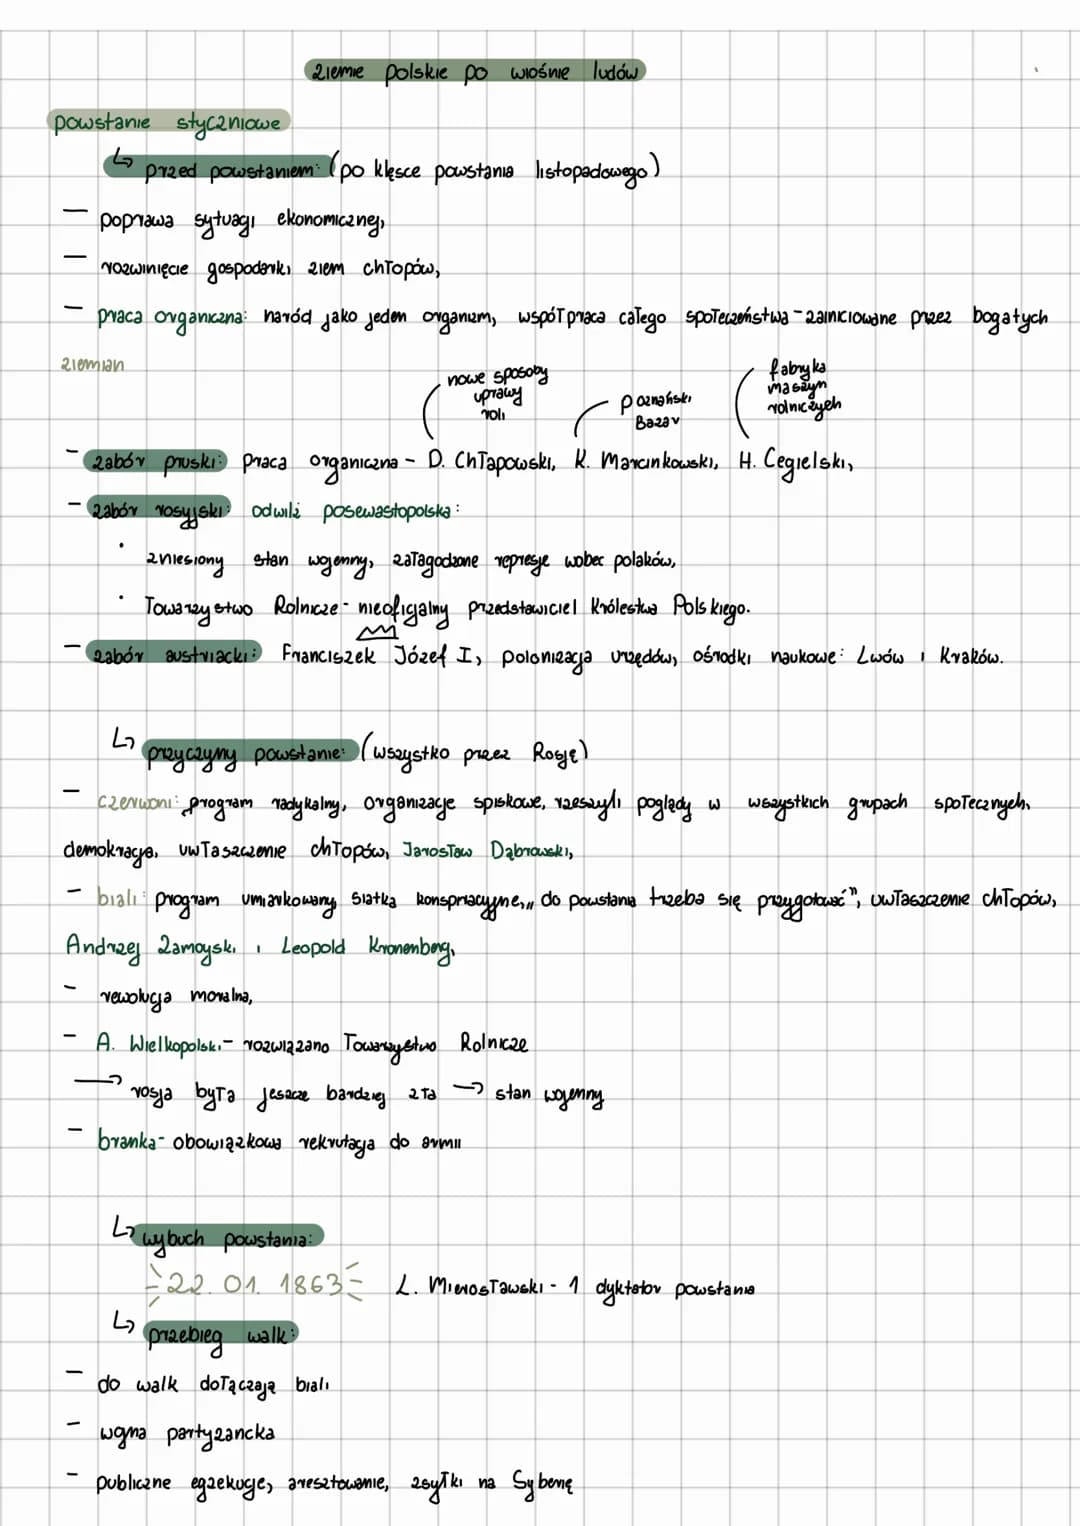 ziemie polskie po wiośnie ludów
powstanie styczniowe
↳ przed powstaniem: (po klęsce powstania listopadowego)
— poprawa sytuacji ekonomicznej,
— rozwinięcie gospodarki ziem chłopów,
— praca organiczna: naród jako jeden organizm, współpraca całego społeczeństwa - zainicjowane przez bogatych
ziemian
nowe sposoby uprawy roli
poznański Bazar
fabryka maszyn rolniczych
- zabór pruski: praca organiczna - D. Chłapowski, K. Marcinkowski, H. Cegielski,
- zabór rosyjski: odwilż posewastopolska:
• zniesiony stan wojenny, załagodzone represje wobec polaków,
• Towarzystwo Rolnicze - nieoficjalny przedstawiciel Królestwa Polskiego.
- zabór austriacki: Franciszek Józef I, polonizacja urzędów, ośrodki naukowe: Lwów i Kraków.
↳ przyczyny powstanie: (wszystko przez Rosję)
— czerwoni: program radykalny, organizacje spiskowe, rzeszyli poglądy w wszystkich grupach społecznych,
demokracja, uwłaszczenie chłopów, Jarosław Dąbrowski,
- biali: program umiarkowany, siatka konspiracyjne, „do powstania trzeba się przygotować", uwłaszczenie chłopów,
Andrzej Zamoyski i Leopold Kronenberg,
- rewolucja moralna,
- A. Wielkopolski - rozwiązano Towarzystwo Rolnicze
→ rosja była jeszcze bardziej zła → stan wojenny
- branka - obowiązkowa rekrutacja do armii
↳ wybuch powstania:
22.01.1863 L. Mierosławski - 1 dyktator powstania
↳ przebieg walk:
— do walk dołączają biali
- wojna partyzancka
- publiczne egzekucje, aresztowanie, zsyłki na Syberię